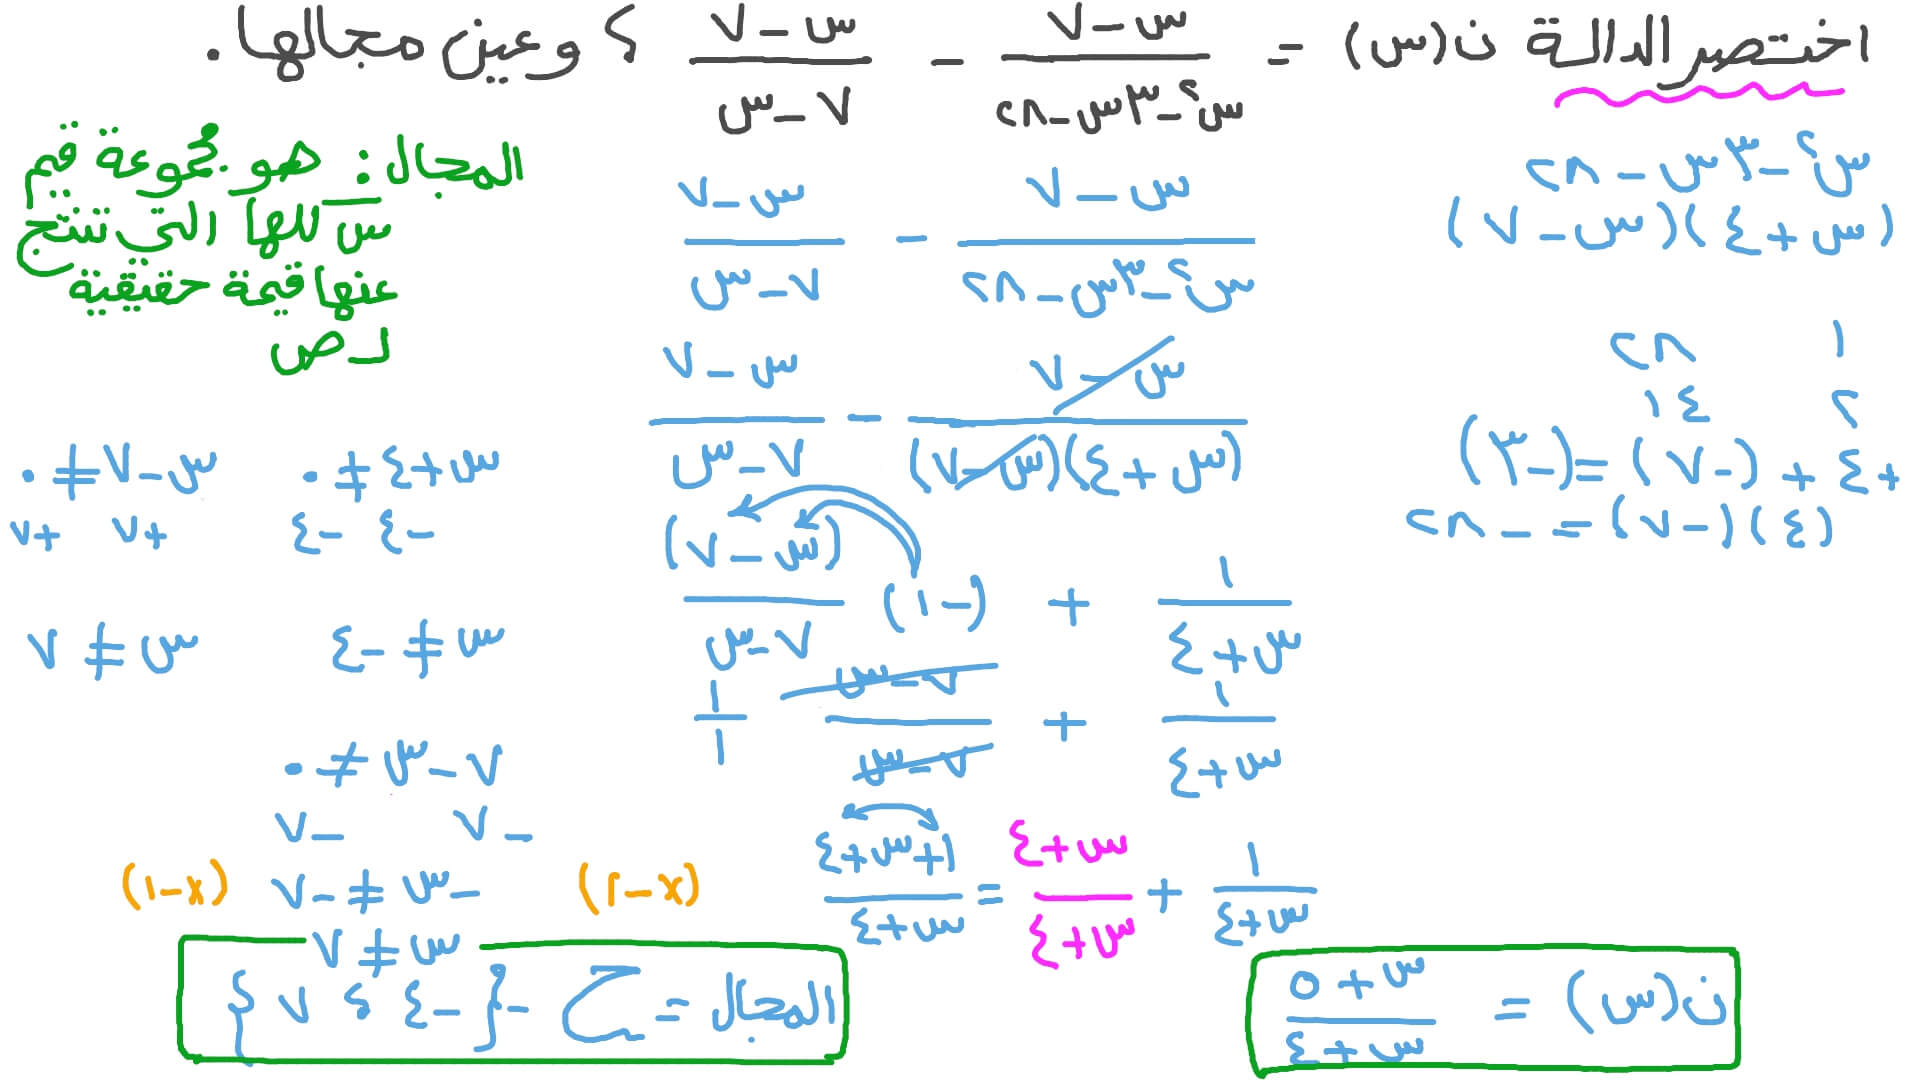 اختصر الدالة ن(س) = (س - ٧)/(س² - ٣س - ٢٨) - (س - ٧)/(٧ - س) ؟ وعين مجالها.
س² - ٣س - ٢٨
(س + ٤)(س - ٧)
١ ٢٨
٢ ١٤
+٤ + (-٧) = (-٣)
(٤)(-٧) = -٢٨
(س - ٧)/(س² - ٣س - ٢٨) - (س - ٧)/(٧ - س)
(س - ٧)/((س + ٤)(س - ٧)) - (س - ٧)/(٧ - س)
١/(س + ٤) + (-١) (س - ٧)/(٧ - س)
١/(س + ٤) + (٧ - س)/(٧ - س) ١/١
١/(س + ٤) + (س + ٤)/(س + ٤) = (١ + س + ٤)/(س + ٤)
ن(س) = (س + ٥)/(س + ٤)
المجال: هو مجموعة قيم
س كلها التي تنتج
عنها قيمة حقيقية
لـ ص
س + ٤ ≠ ٠ س - ٧ ≠ ٠
-٤ -٤ +٧ +٧
س ≠ -٤ س ≠ ٧
٧ - س ≠ ٠
-٧ -٧
(×-١) -س ≠ -٧ (×-١)
س ≠ ٧
المجال = ح - {-٤ ، ٧}